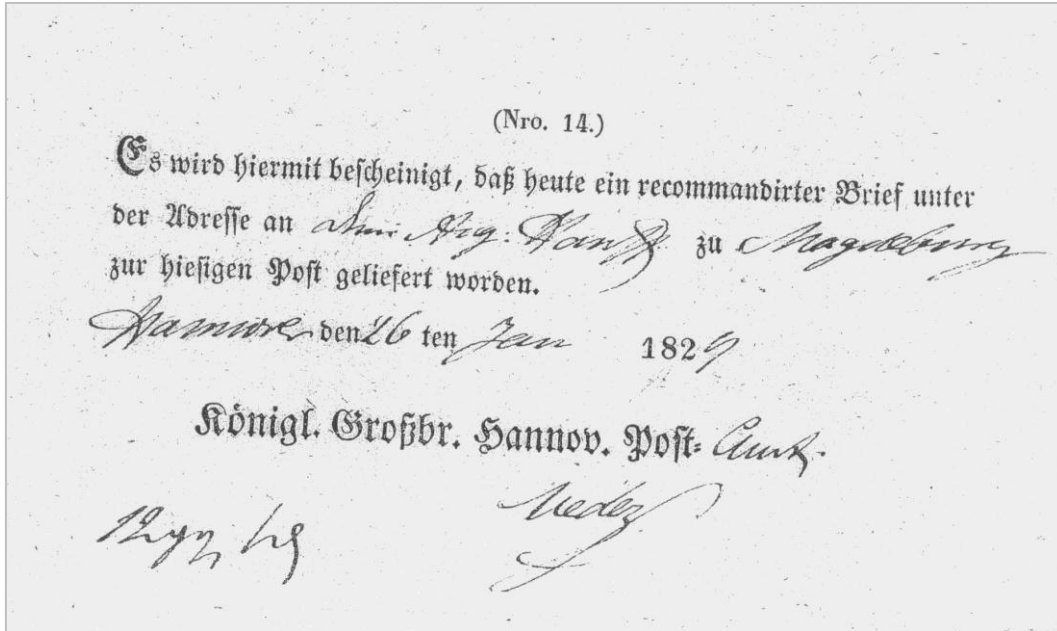 (Nro. 14.)
Es wird hiermit bescheinigt, daß heute ein recommandirter Brief unter
der Adresse an zu Magdeburg
zur hiesigen Post geliefert worden.
Hannover den 26 ten Jan 1829
Königl. Großbr. Hannov. Post- Amt.